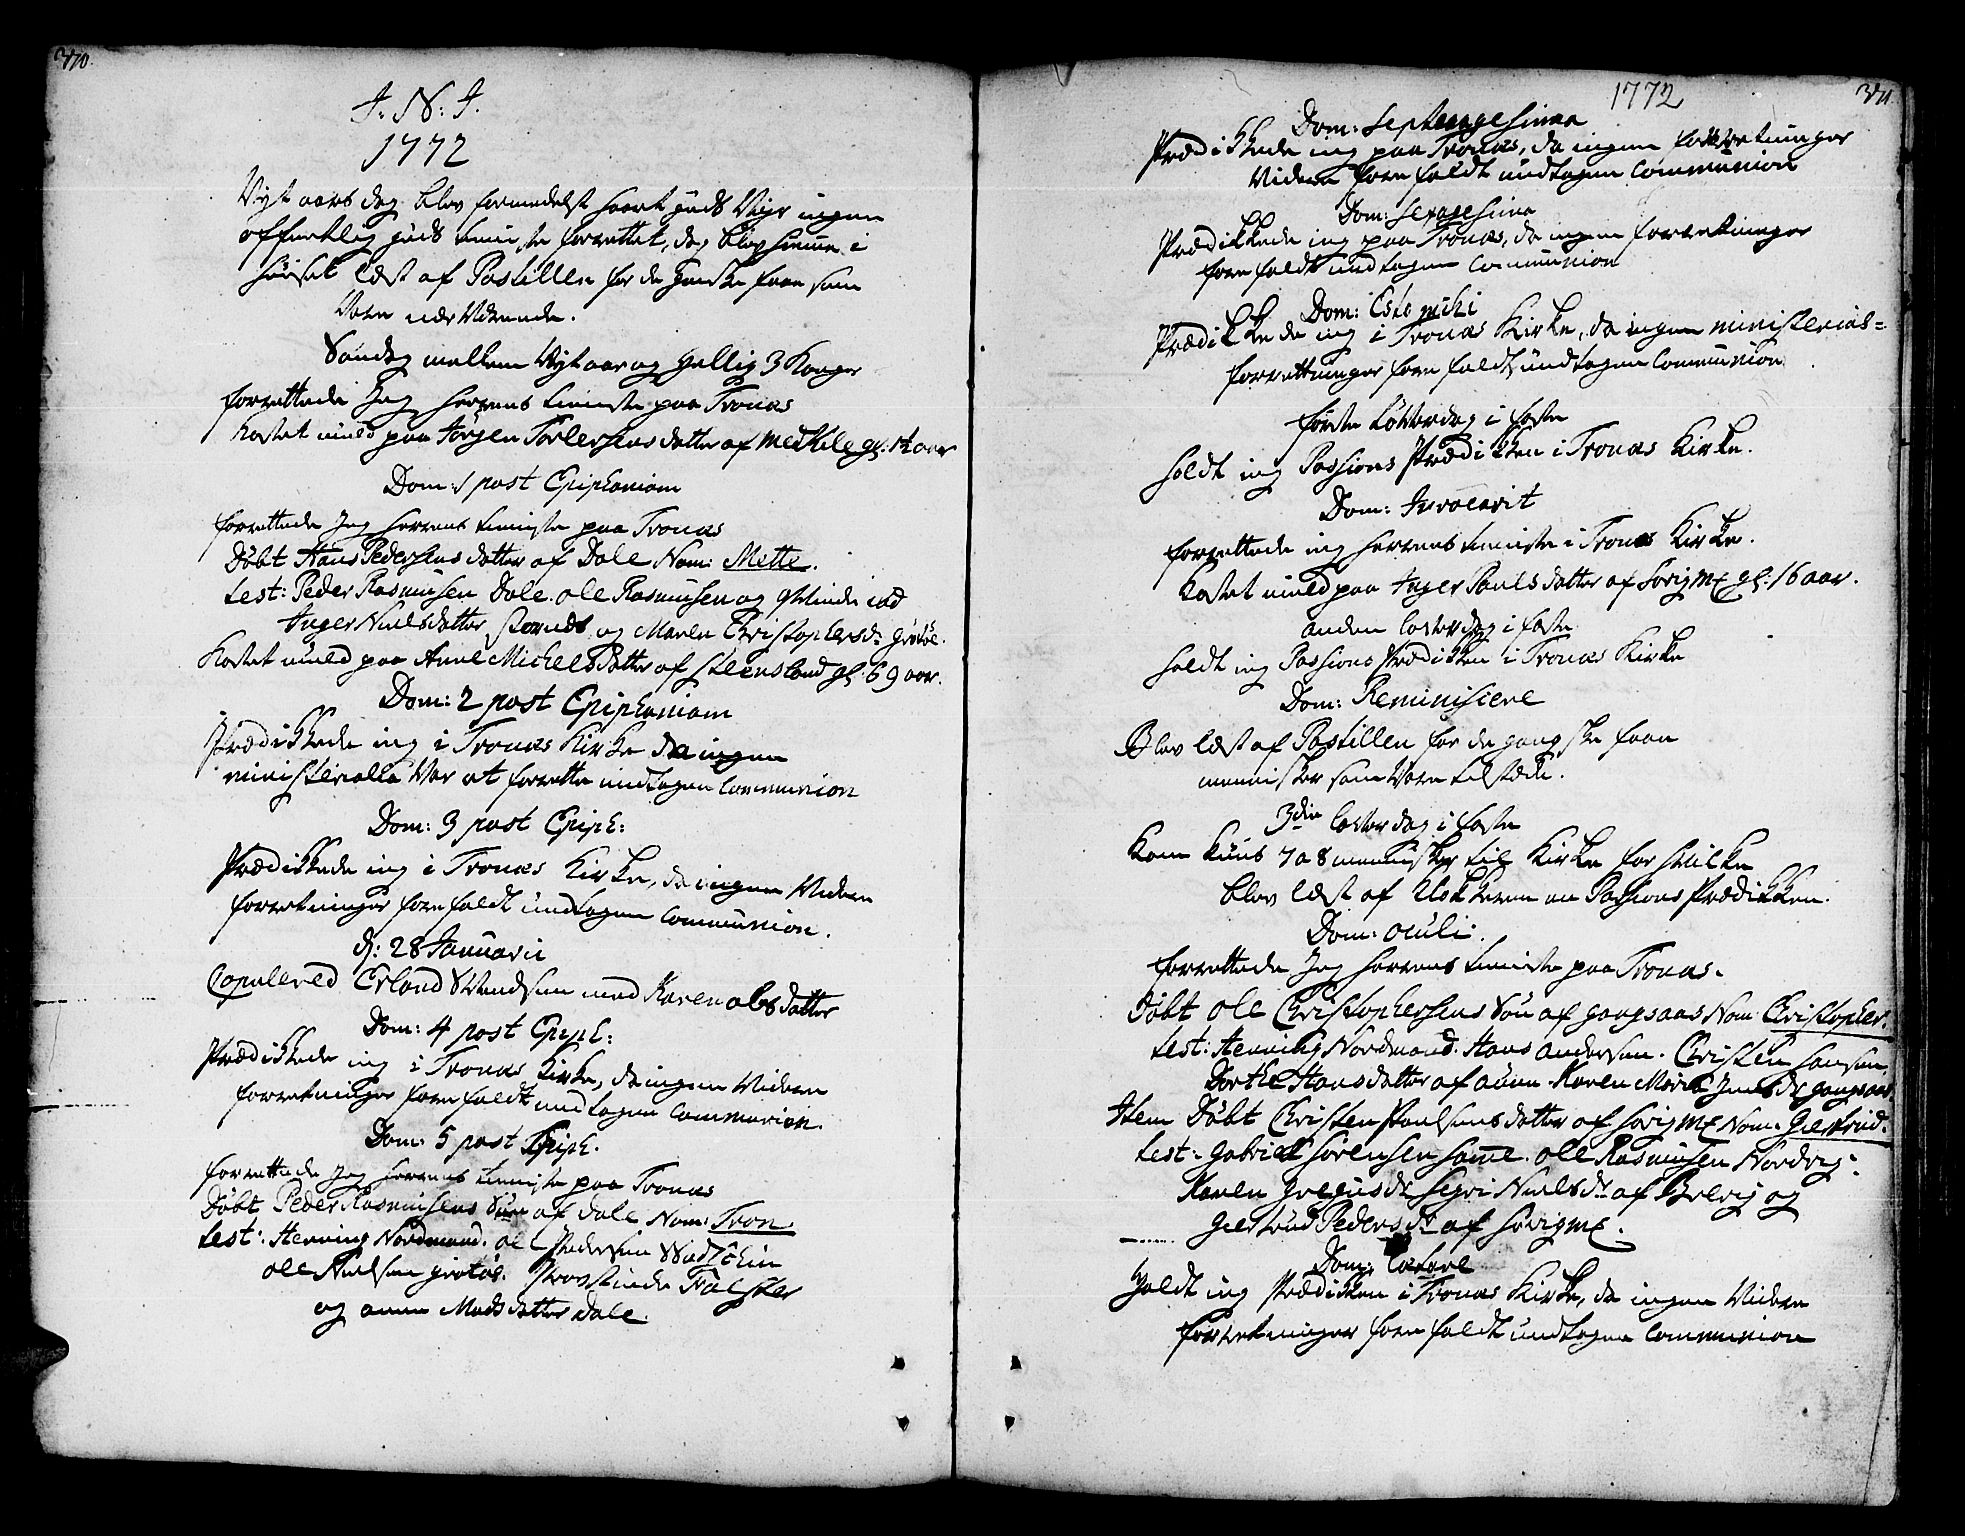 370.
J: N: J.
1772
Nyt aars dag blev formedelst haart guds Veyr ingen
offentlig guds tieniste forrettet, dog blev hiemme i
huuset læst af Postillen for de ganske faae som
Vare nærværende.
Søndag mellem Nytaar og Hellig 3 Konger
forrettede Jeg Herrens tieniste paa Tronæs
Kastet muld paa Jørgen Torlersens datter af Medkile gl: 14 aar
Dom: 1 post Epiphaniam
forrettede Jeg Herrens tieniste paa Tronæs
Døbt Hans Pedersens datter af Dale Nom: Mette.
test: Peder Rasmusen Dale. ole Rasmusen og qvinde ibd
Inger Nielsdatter Stornæs og Maren Christophersdr grøtøe.
Kastet muld paa Anne Michelsdatter af steensland gl. 69 aar.
Dom: 2 post Epiphaniam
Prædikkede ieg i Tronæs Kirke da ingen
ministerialia Var at forrette undtagen Communion
Dom: 3 post Epiph:
Prædikkede ieg i Tronæs Kirke, da ingen Videre
forretninger forefaldt undtagen Communion.
d: 28 Januarii
Copulered Erland Svendsen med Karen olesdatter
Dom: 4 post Epiph:
Prædikkede ieg i Tronæs Kirke, da ingen Videre
forretninger forefaldt undtagen Communion.
Dom: 5 post Epiph.
forrettede Jeg Herrens tieniste paa Tronæs
Døbt Peder Rasmusens Søn af dale Nom: Tron.
test: Henning Nordmand. ole Pedersen
ole Nielsen grøtøe. Provstinde
og anne Madsdatter Dale.
1772
371.
Dom: Septuagesima
Prædikkede ieg paa Tronæs, da ingen forretninger
Videre forefaldt undtagen Communion
Dom: Sexagesima
Prædikkede ieg paa Tronæs, da ingen forretninger
forefaldt undtagen Communion
Dom: Estomihi
Prædikkede ieg i Tronæs Kirke, da ingen ministerial=
forrettninger forefaldt undtagen Communion
første løverdag i faste
holdt ieg Passions Prædikken i Tronæs Kirke.
Dom: Invocavit
forrettede ieg Herrens tieniste i Tronæs Kirke.
Kastet muld paa Inger Povels datter af Sørigme gl: 16 aar.
anden løverdag i faste
holdt ieg Passions Prædikken i Tronæs Kirke
Dom: Reminiscere
Blev læst af Postillen for de gandske faae
mennisker som Vare tilstæde.
3die løverdag i faste
Kom kuns 7 a 8 mennisker til Kirke for hvilke
blev læst af Klokkeren en Passions Prædikken.
Dom: Oculi.
forrettede Jeg Herrens tieniste paa Tronæs.
Døbt ole Christophersens Søn af gangsaas Nom: Christopher.
test: Henning Nordmand. Hans andersen. Christen Hansen,
Dorthe Hansdatter af aune Karen Marie Jensdr gangsaas
Item Døbt Christen Poulsens datter af Sørigme Nom: Giertrud.
test: Gabriel Sørensen samme. ole Rasmusen Nordvig:
Karen gregusdr Sigri Nielsdr af Brevig og
Giertrud Pedersdr af Sørigme.
Dom: Lætare
Holdt ieg Prædikken i Tronæs Kirke, da ingen Videre
forretninger forefaldt undtagen Communion